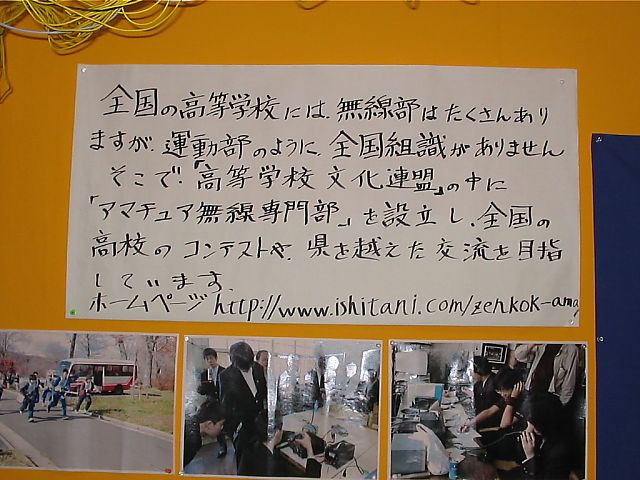 全国の高等学校には、無線部はたくさんあり
ますが、運動部のように、全国組識がありません
そこで、「高等学校文化連盟」の中に
「アマチュア無線専門部」を設立し、全国の
高校のコンテストや、県を越えた交流を目指
しています。
ホームページ http://www.ishitani.com/zenkok-ama